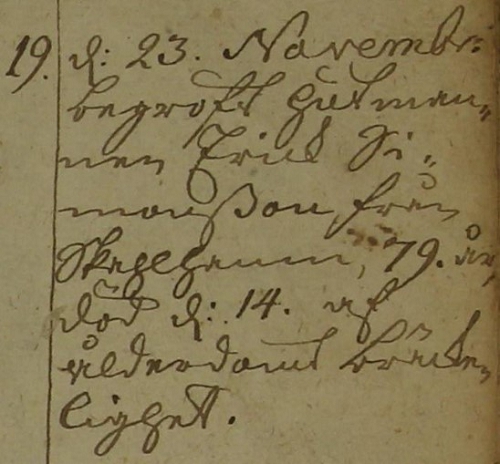 19. d: 23. Novembr:
begrofs Gutman-
nen Erick Si-
monsson från
Skepphamn, 79. år,
död d: 14. af
ålderdoms bräcke-
lighet.